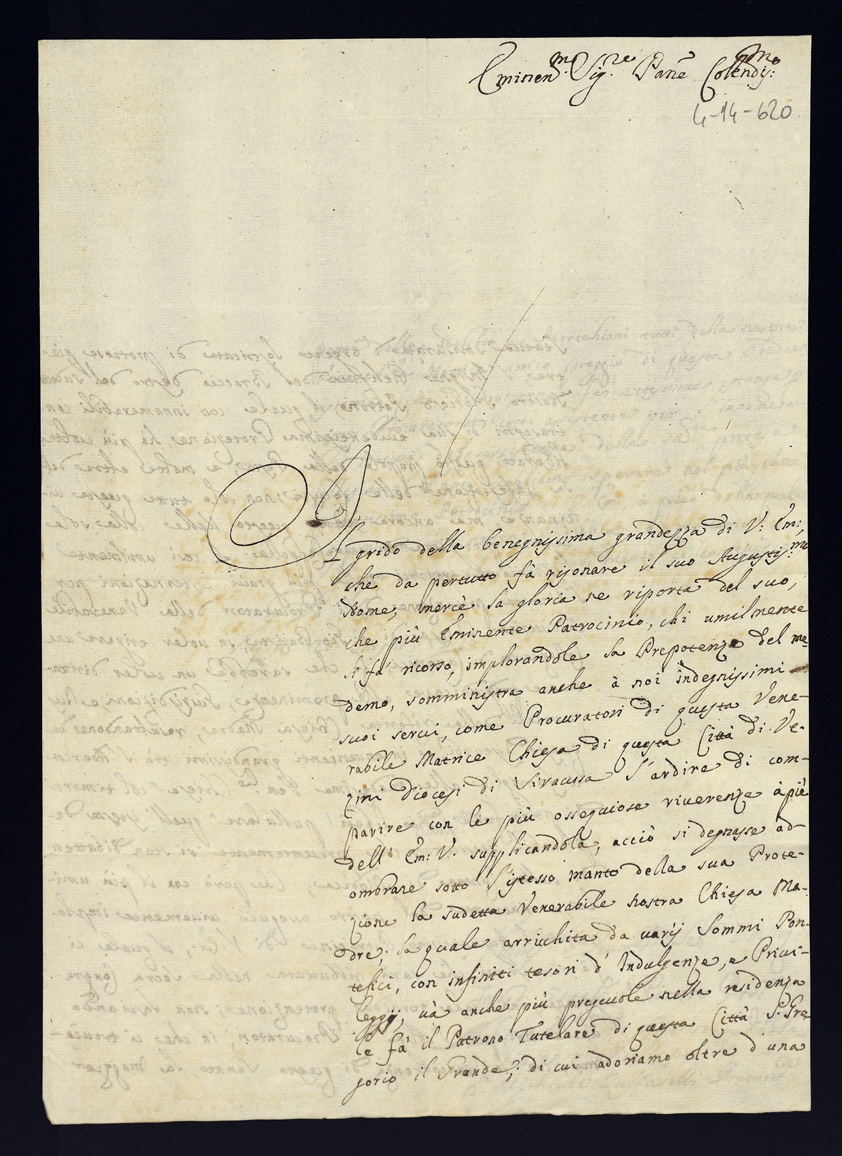 Eminen.mo Sig.re Pãne Colendis:mo
4-14-620
Il grido della benegnissima grandezza di V: Em:
che da pertutto fà risonare il suo Augustis:mo
Nome, mercè la gloria ne riporta del suo,
che più Eminente Patrocinio, chi umilmente
si fà ricorso, implorandole la Prepotenza del me-
demo, somministra anche à noi indegnissimi
suoi servi, come Procuratori di questa Vene-
rabile Matrice Chiesa di questa Città di Ve-
zini Diocesi di Siracusa l'ardire di com-
parire con le più ossequiose riverenze à piè
dell' Em: V. supplicandola, acciò si degnasse ad-
ombrare sotto l'istesso manto della sua Prote-
zione la sudetta Venerabile nostra Chiesa Ma-
dre; la quale arrichita da varij Sommi Pon-
tefici, con infiniti tesori d'Indulgenze, e Privi-
leggij, và anche più preggevole nella residenza
le fà il Patrono Tutelare di questa Città S. Gre
gorio il Grande; di cui adoriamo oltre d'una